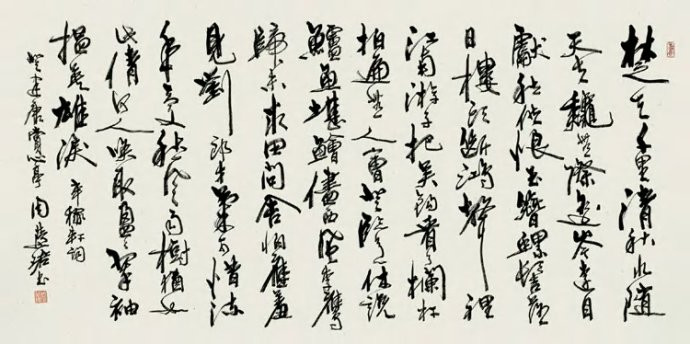 楚天千里清秋水隨
天去秋無際遥岑遠目
獻愁供恨玉簪螺髻落
日樓頭斷鴻聲裡
江南游子把吴鈎看了欄杆
拍遍無人會登臨意休説
鱸魚堪鱠儘西風季鷹
歸未求田問舍怕應羞
見劉郎才氣可惜流
年憂愁風雨樹猶如
此倩何人唤取盈盈翠袖
揾英雄淚 辛稼軒詞
登建康賞心亭 周慧珺书